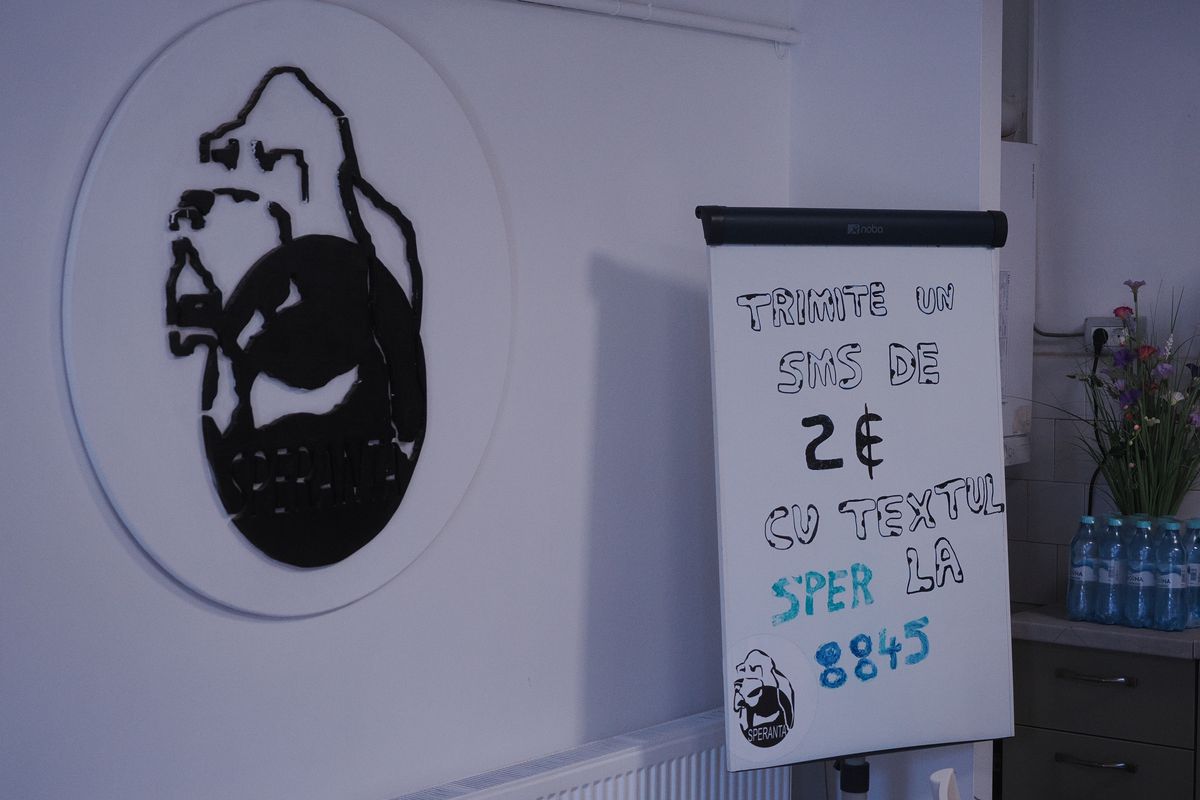 SPERANTA
noba
TRIMITE UN
SMS DE
2€
CU TEXTUL
SPER LA
8845
SPERANTA